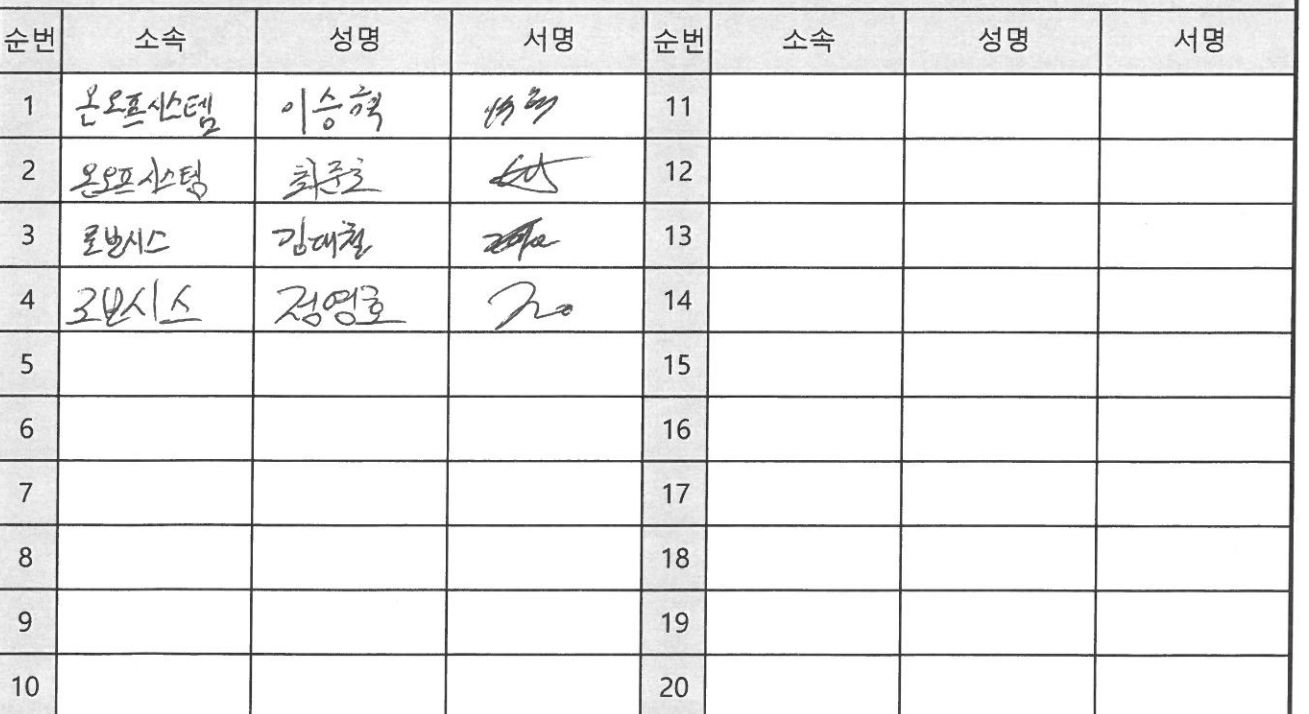 순번 소속 성명 서명 순번 소속 성명 서명
1 온오프시스템 이승혁 11
2 온오프시스템 최준호 12
3 로반시스 김대철 13
4 로반시스 정영호 14
5 15
6 16
7 17
8 18
9 19
10 20